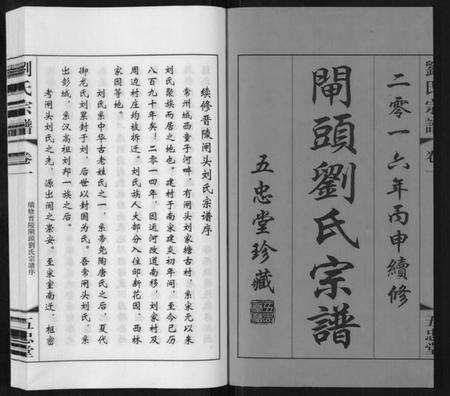 劉氏宗譜 卷一
二零一六年丙申續修
閘頭劉氏宗譜
五忠堂珍藏
五忠堂
续修晋陵闸头刘氏宗谱序
常州城西童子河畔，有闸头刘家塘古村，系宋元以来
刘氏聚族而居之地也。建村于南宋建炎初年间，至今已历
八百九十年矣！二零一四年，因运河改道南移，刘家村及
周边村庄均被拆迁。刘氏族人大部分入住邹新花园、西林
家园等地。
刘氏系中华古老姓氏之一，系帝尧陶唐氏之后，夏代
御龙氏刘累封于刘，后世以封国为氏。吾常闸头刘氏，系
出彭城，系汉高祖刘邦一族之后。
考闸头刘氏之先，源出闽之崇安。至宋室南迁，祖密
劉氏宗譜
卷一
續修晉陵閘頭劉氏譜序
五忠堂